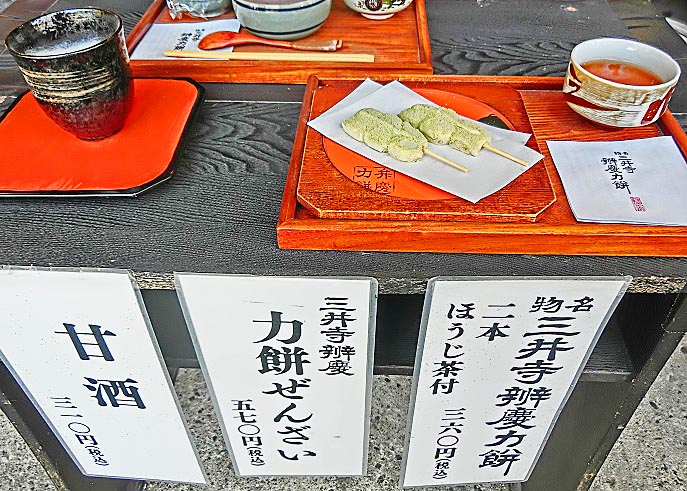 三井寺
辨慶力餅
力餅
弁慶
名物
三井寺辨慶力餅
二本
ほうじ茶付
三六〇円(税込)
三井寺辨慶
力餅ぜんざい
五七〇円(税込)
甘酒
三一〇円(税込)